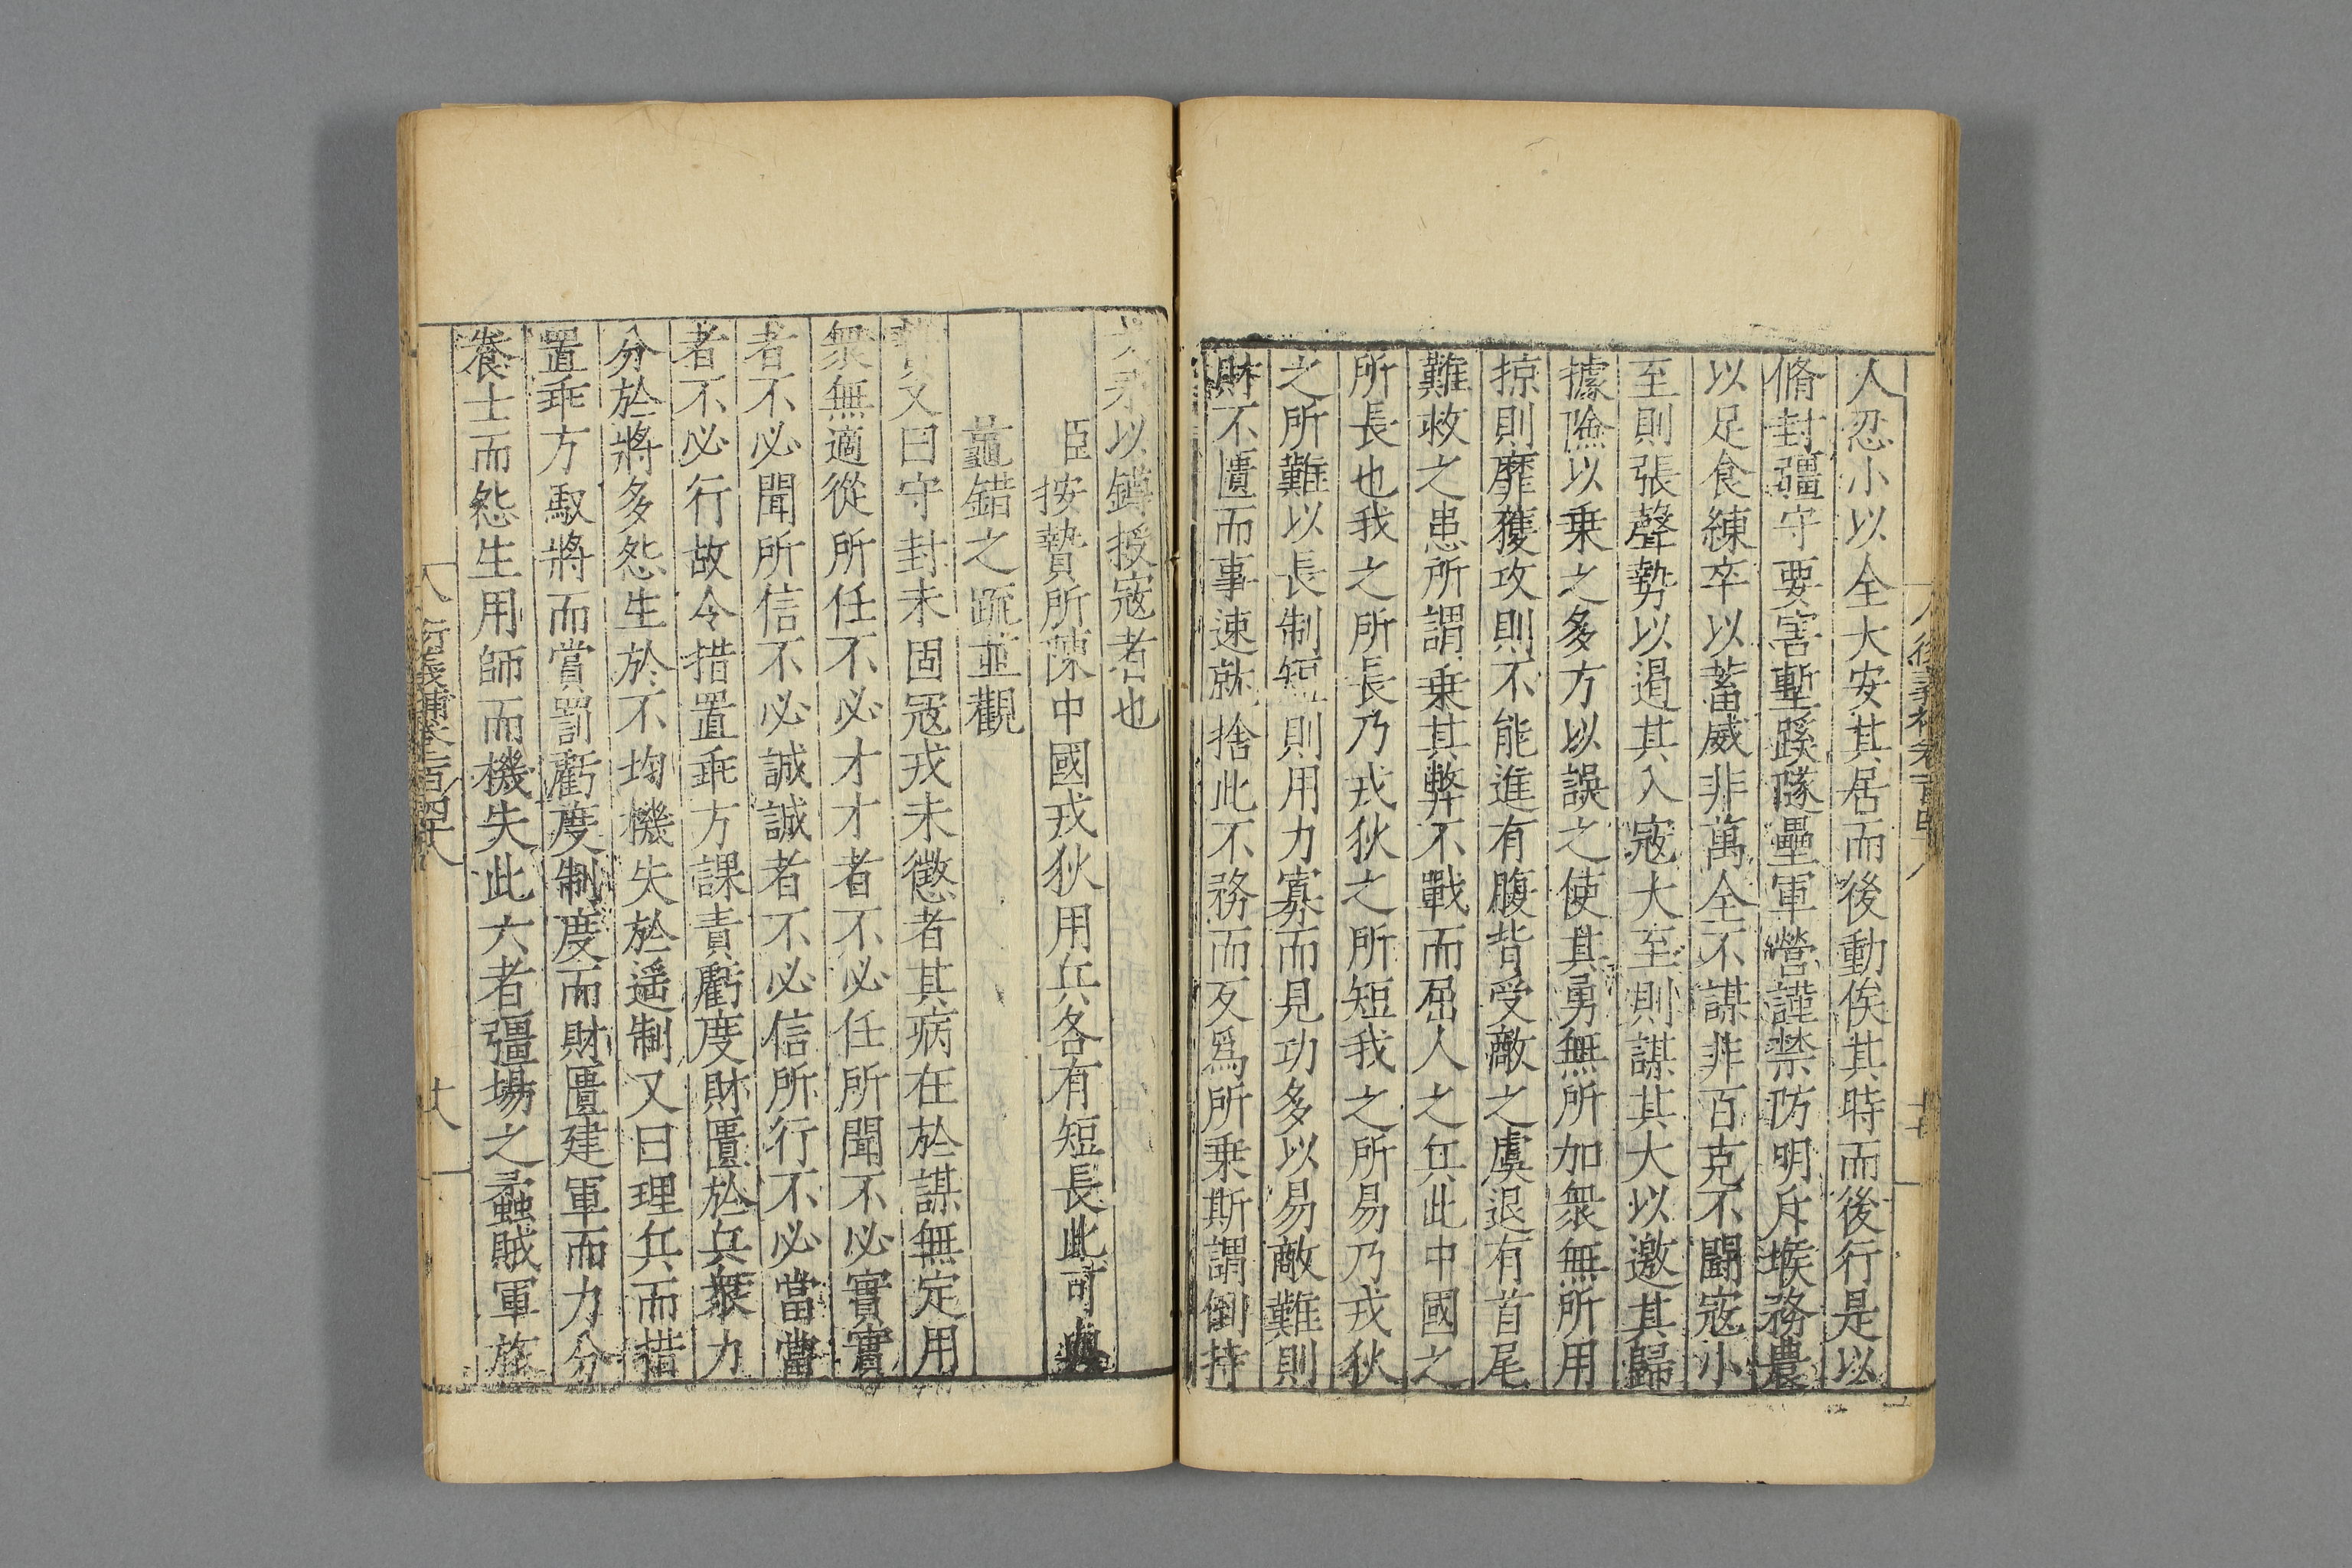 人忍小以全大安其居而後動俟其時而後行是以
脩封疆守要害塹蹊隧壘軍營謹禁防明斥堠務農
以足食練卒以蓄威非萬全不謀非百克不鬪寇小
至則張聲勢以遏其入寇大至則謀其大以邀其歸
據險以乗之多方以誤之使其勇無所加衆無所用
掠則靡獲攻則不能進有腹背受敵之虞退有首尾
難救之患所謂乗其弊不戰而屈人之兵此中國之
所長也我之所長乃戎狄之所短我之所易乃戎狄
之所難以長制短則用力寡而見功多以易敵難則
財不匱而事速就捨此不務而反爲所乗斯謂倒持
以鐏授寇者也
臣按贄所陳中國戎狄用兵各有短長此可與
鼂錯之䟽並觀
贄又曰守封未固寇戎未懲者其病在於謀無定用
衆無適從所任不必才才者不必任所聞不必實實
者不必聞所信不必誠誠者不必信所行不必當當
者不必行故令措置乖方課責虧度財匱於兵衆力
分於將多怨生於不均機失於遥制又曰理兵而措
置乖方馭將而賞罰虧度制度而財匱建軍而力分
養士而怨生用師而機失此六者疆場之蟊賊軍旅
衍義補卷一百四十八
十八